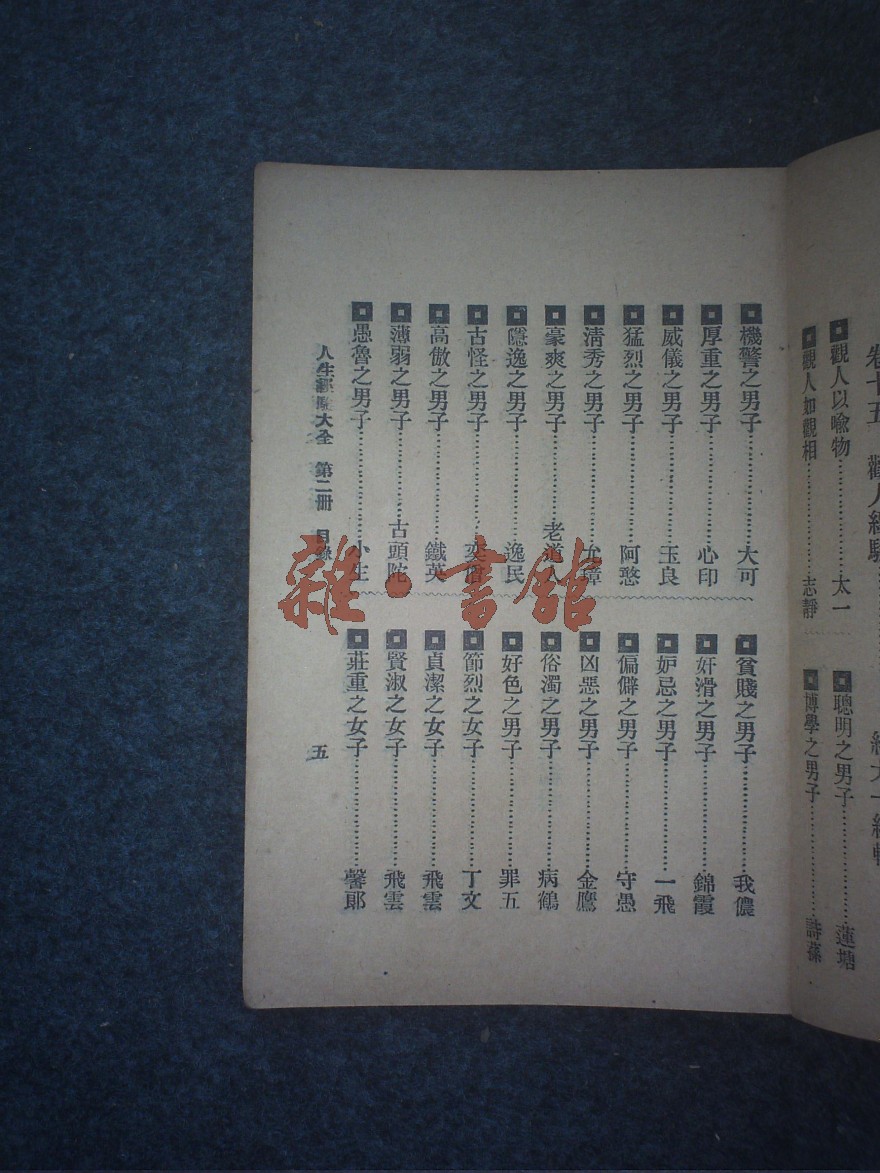 卷十五 觀人經驗
觀人以喩物 太一
觀人如觀相 志靜
聰明之男子 蓮塘
博學之男子
機警之男子 大可
厚重之男子 心印
威儀之男子 玉良
猛烈之男子 阿憨
清秀之男子
豪爽之男子 老道人
隱逸之男子 逸民
古怪之男子
高傲之男子 鐵英
薄弱之男子 古頭陀
愚魯之男子 小生
貧賤之男子 我儂
奸滑之男子 錦霞
妒忌之男子 一飛
偏僻之男子 守愚
凶惡之男子 金鷹
俗濁之男子 病鶴
好色之男子 罪五
節烈之女子 丁文
貞潔之女子 飛雲
賢淑之女子 飛雲
莊重之女子 馨郞
人生經驗大全 第二冊 目錄
五
雜·書館